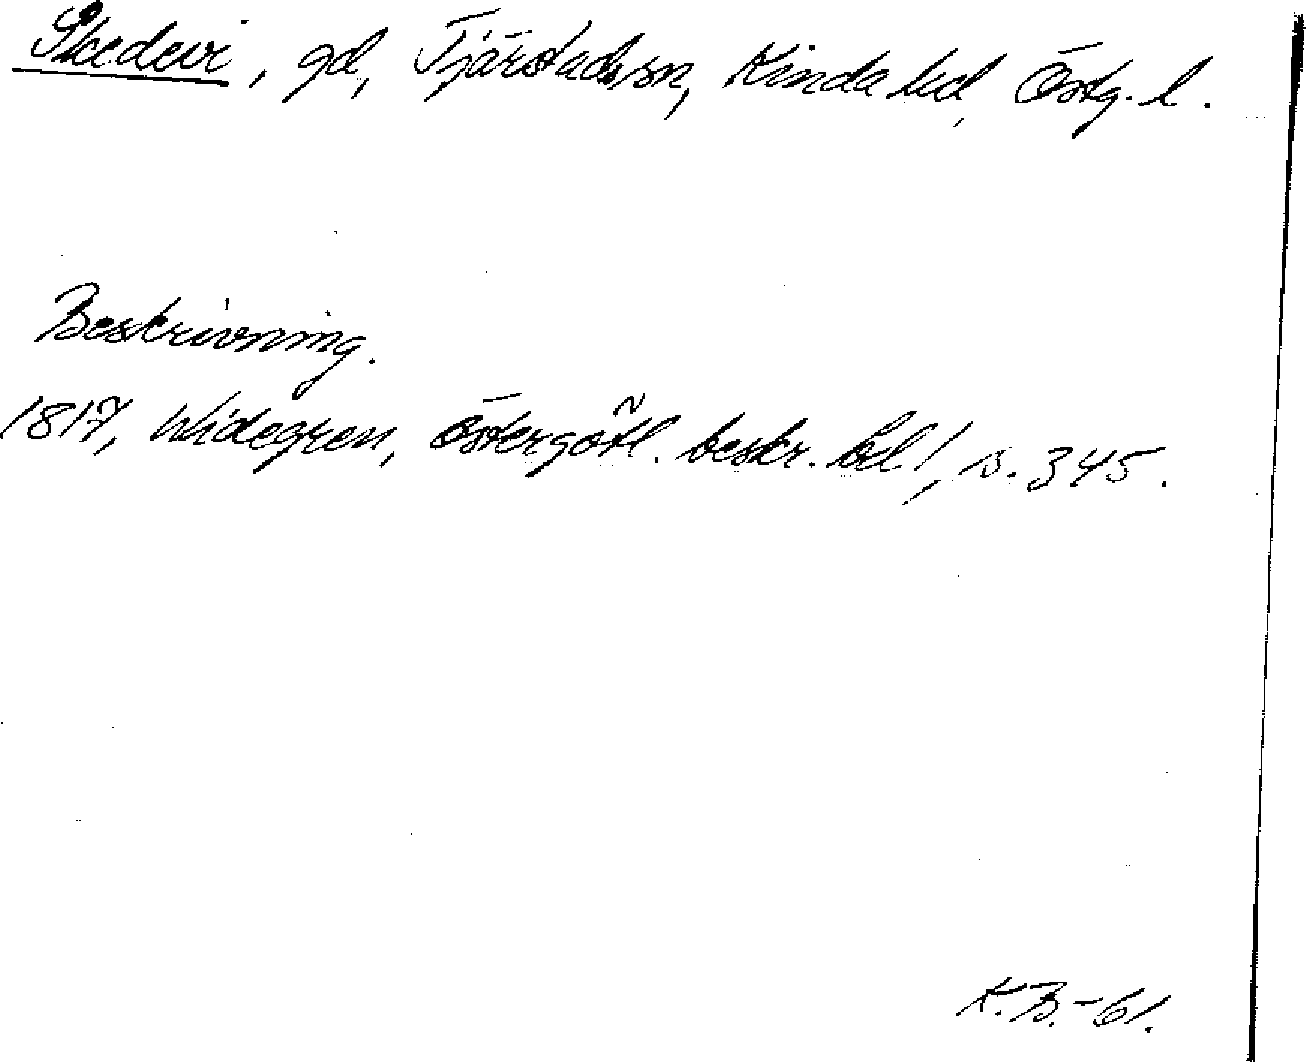 Skedevi, gd, Tjärstads sn, Kinda hd, Östg. l.
Beskrivning.
1817, Widegren, Östergötl. beskr. bd 1, s. 345.
K.B. -61.